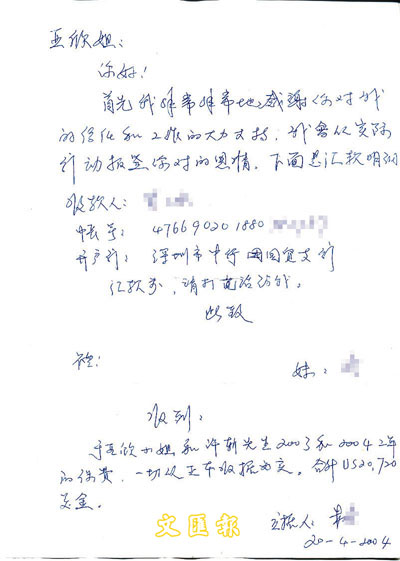 亚欣姐:
你好!
首先我非常非常地感谢你对我
的信任和工作的大力支持,我会从实际
行动报答你对的恩情。下面是汇款明细
收款人:
帐号: 476690201880
开户行: 深圳市中行国贸支行
汇款后,请打电话给我。
此致
礼:
妹:
收到:
于亚欣小姐和许斩先生2003和2004 2年
的保费,一切以正本收据为交。合计US20,720
美金。
立据人:
20-4-2004
文匯报